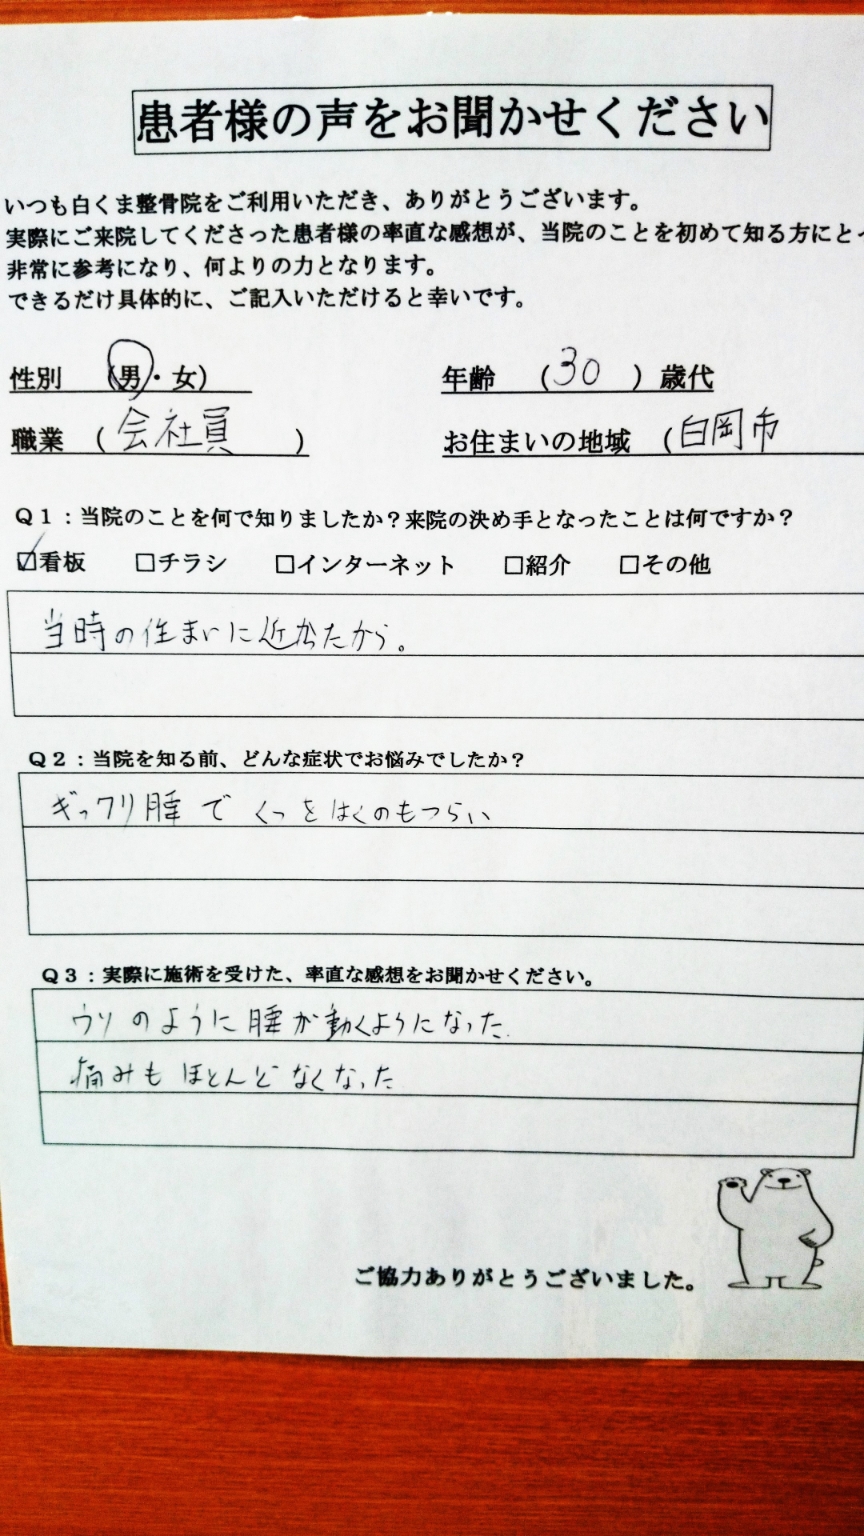 患者様の声をお聞かせください
いつも白くま整骨院をご利用いただき、ありがとうございます。
実際にご来院してくださった患者様の率直な感想が、当院のことを初めて知る方にとっ
非常に参考になり、何よりの力となります。
できるだけ具体的に、ご記入いただけると幸いです。
性別 (男・女) 年齢 (30) 歳代
職業 (会社員) お住まいの地域 (白岡市
Q1:当院のことを何で知りましたか?来院の決め手となったことは何ですか?
☑看板 □チラシ □インターネット □紹介 □その他
当時の住まいに近かったから。
Q2:当院を知る前、どんな症状でお悩みでしたか?
ギックリ腰でくつをはくのもつらい
Q3:実際に施術を受けた、率直な感想をお聞かせください。
ウソのように腰が動くようになった.
痛みもほとんどなくなった
ご協力ありがとうございました。